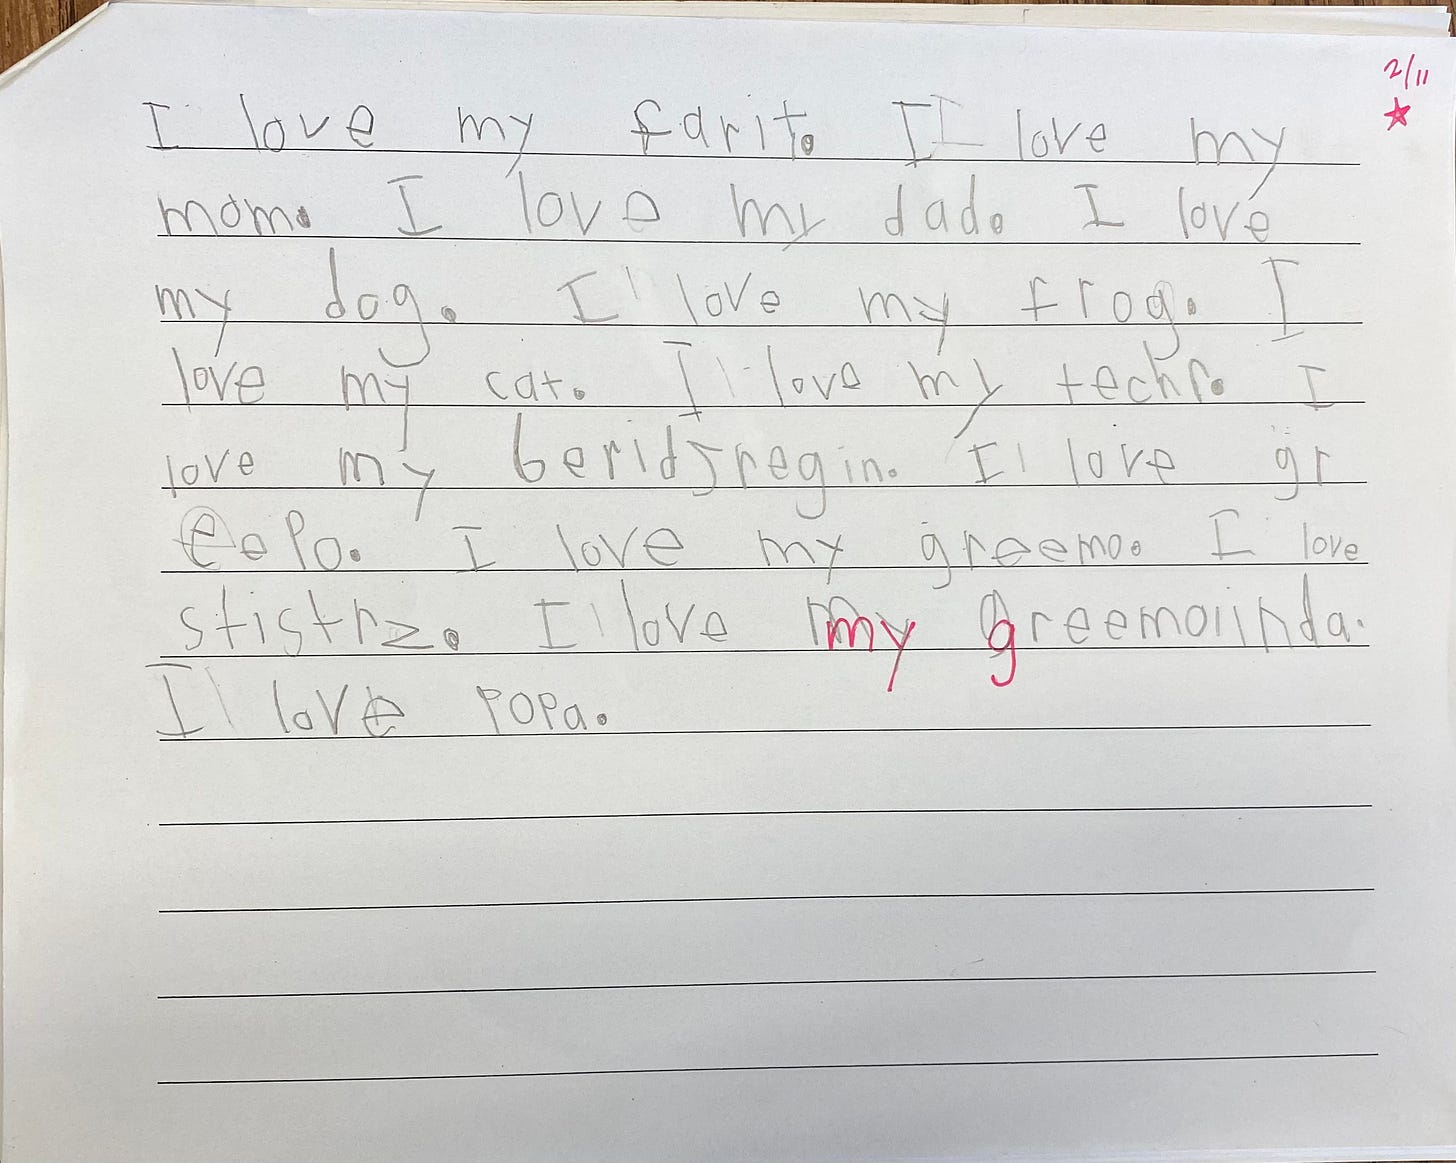 2/11
I love my farit. I love my
mom. I love my dad. I love
my dog. I love my frog. I
love my cat. I love my techr. I
love my beridsregin. I love gr
eepo. I love my greemo. I love
stistrz. I love my greemoiinda.
I love popa.